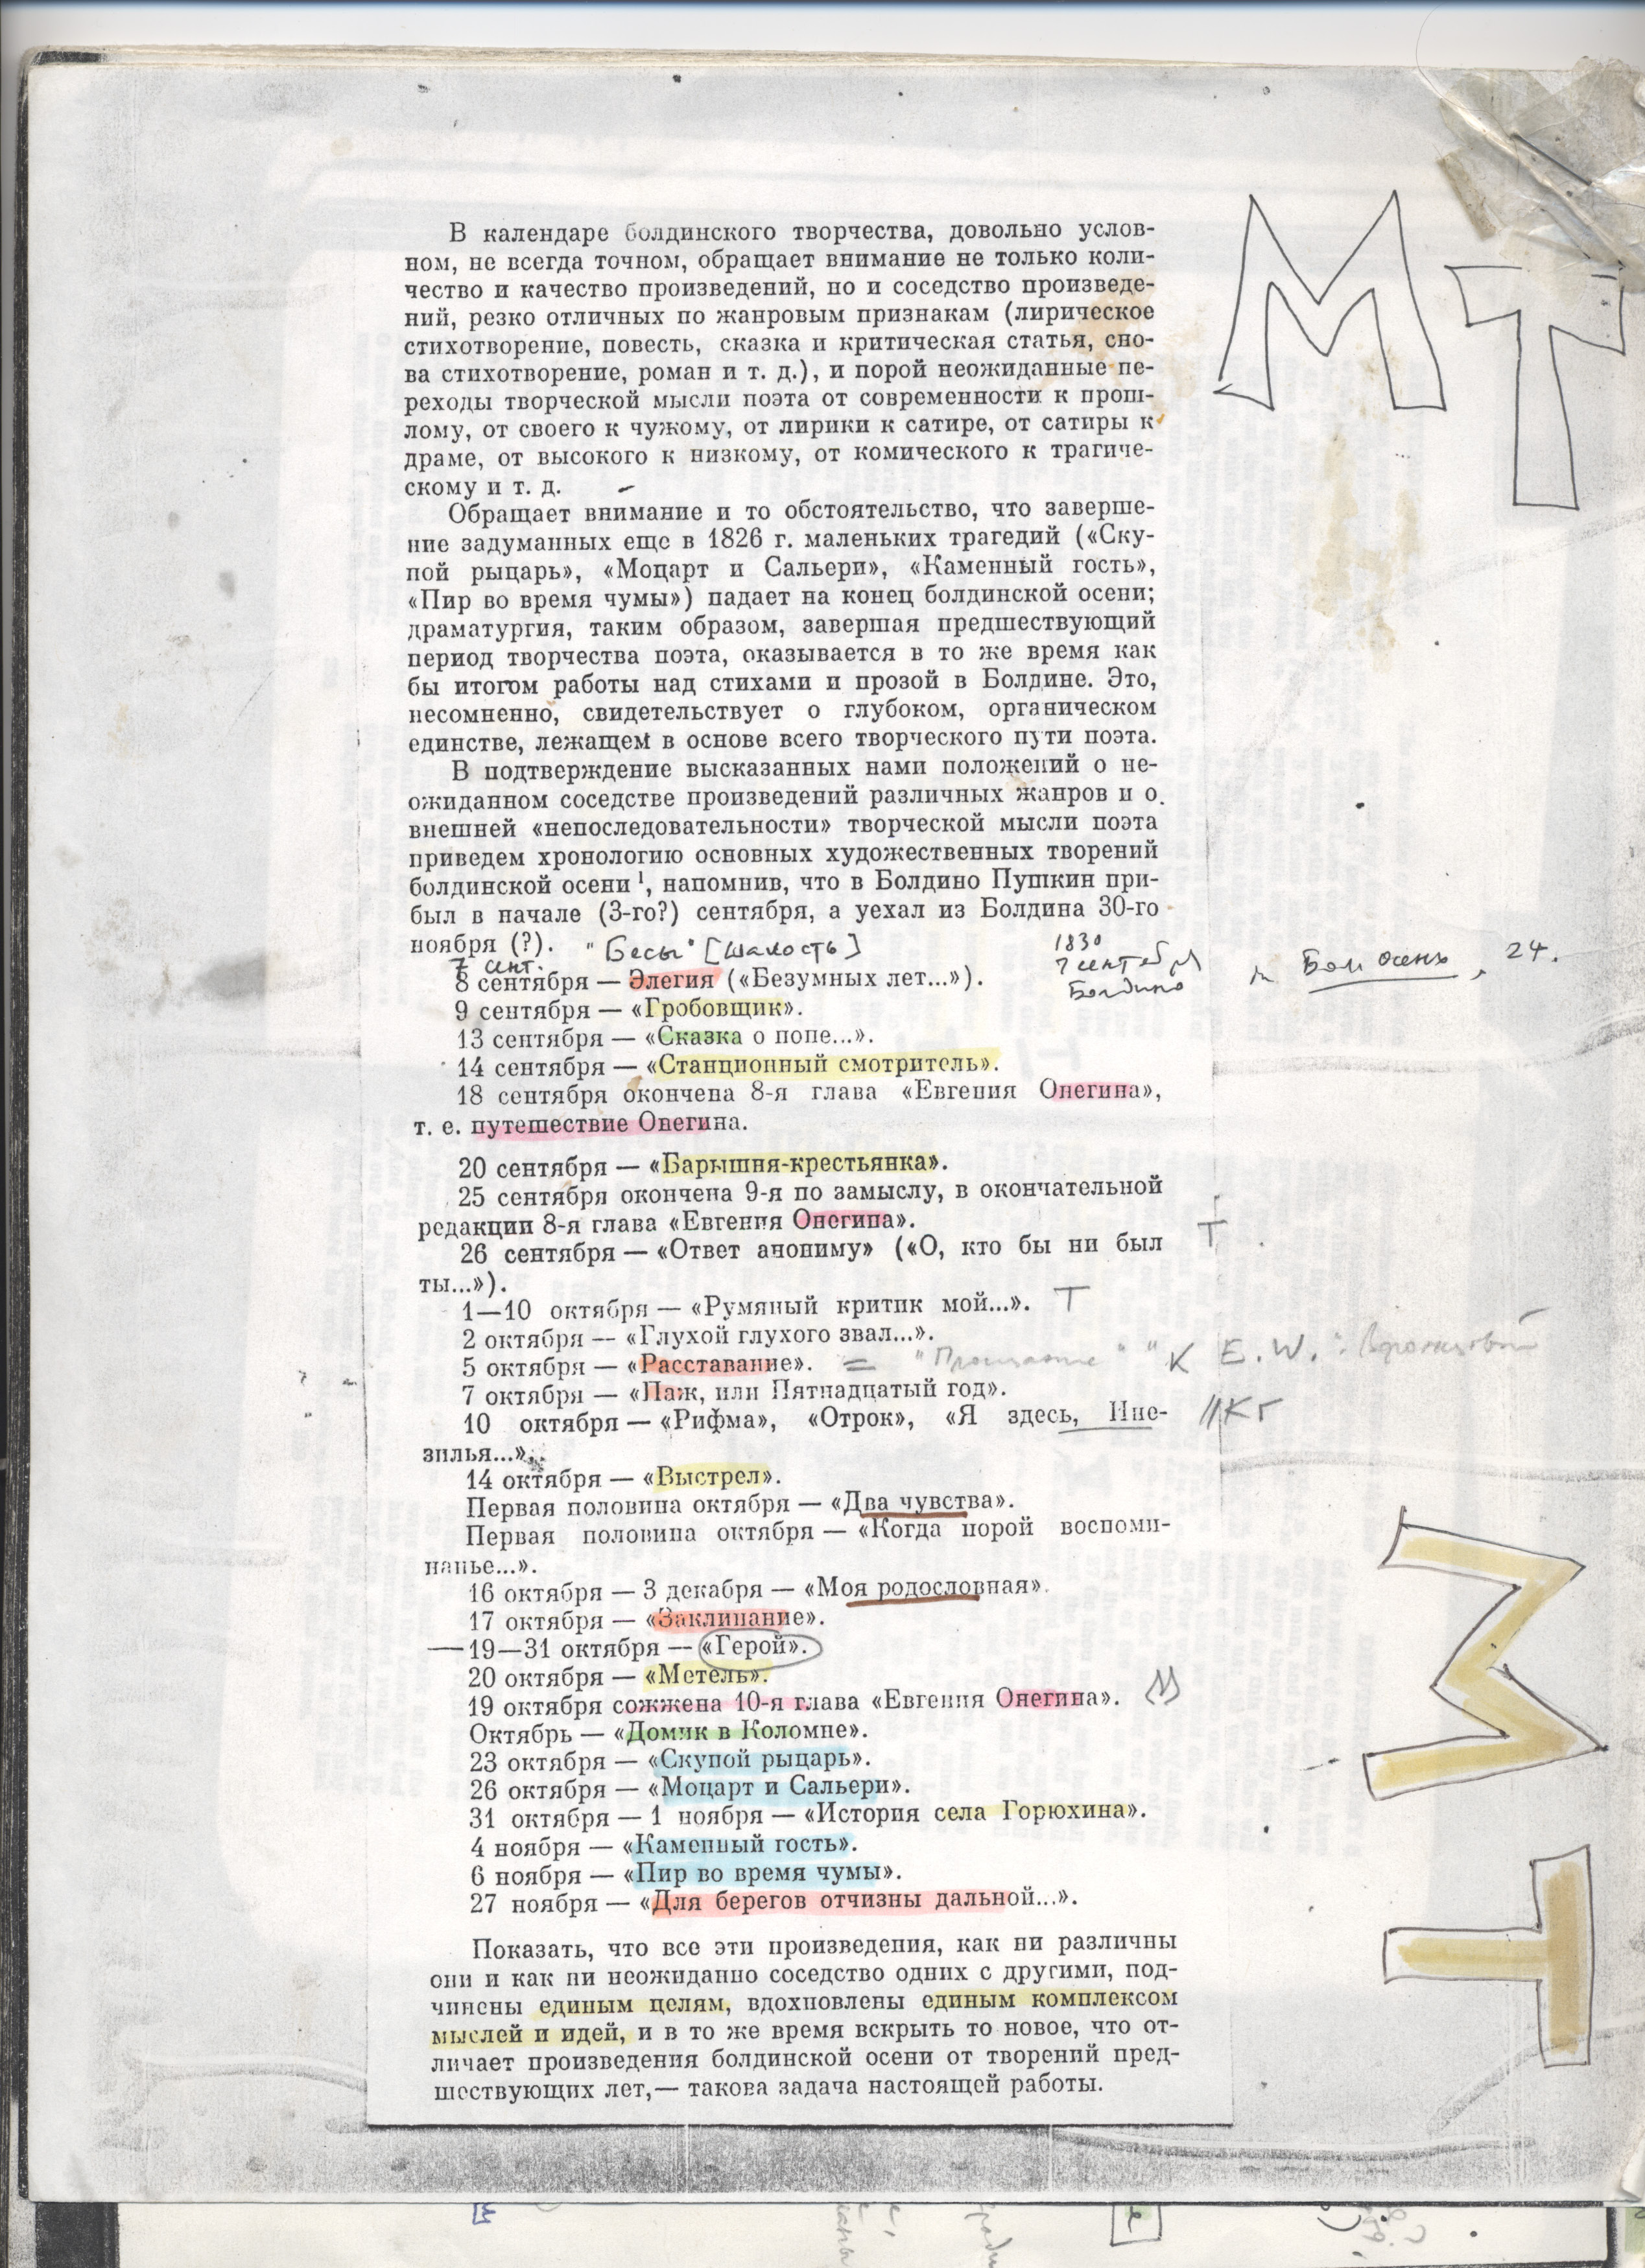 В календаре болдинского творчества, довольно услов-
ном, не всегда точном, обращает внимание не только коли-
чество и качество произведений, но и соседство произведе-
ний, резко отличных по жанровым признакам (лирическое
стихотворение, повесть, сказка и критическая статья, сно-
ва стихотворение, роман и т. д.), и порой неожиданные пе-
реходы творческой мысли поэта от современности к прош-
лому, от своего к чужому, от лирики к сатире, от сатиры к
драме, от высокого к низкому, от комического к трагиче-
скому и т. д.
МТ
Обращает внимание и то обстоятельство, что заверше-
ние задуманных еще в 1826 г. маленьких трагедий («Ску-
пой рыцарь», «Моцарт и Сальери», «Каменный гость»,
«Пир во время чумы») падает на конец болдинской осени;
драматургия, таким образом, завершая предшествующий
период творчества поэта, оказывается в то же время как
бы итогом работы над стихами и прозой в Болдине. Это,
несомненно, свидетельствует о глубоком, органическом
единстве, лежащем в основе всего творческого пути поэта.
В подтверждение высказанных нами положений о не-
ожиданном соседстве произведений различных жанров и о
внешней «непоследовательности» творческой мысли поэта
приведем хронологию основных художественных творений
болдинской осени ¹, напомнив, что в Болдино Пушкин при-
был в начале (3-го?) сентября, а уехал из Болдина 30-го
ноября (?).
7 сент. "Бесы" [шалость]
1830
7 сентября
Болдино
Бол осень, 24.
8 сентября — Элегия («Безумных лет...»).
9 сентября — «Гробовщик».
13 сентября — «Сказка о попе...».
14 сентября — «Станционный смотритель».
18 сентября окончена 8-я глава «Евгения Онегина»,
т. е. путешествие Онегина.
20 сентября — «Барышня-крестьянка».
25 сентября окончена 9-я по замыслу, в окончательной
редакции 8-я глава «Евгения Онегина».
26 сентября — «Ответ анониму» («О, кто бы ни был
ты...»).
Т
1—10 октября — «Румяный критик мой...». Т
2 октября — «Глухой глухого звал...».
5 октября — «Расставание». = "Прощание" "К Е. W.": Воронцовой
7 октября — «Паж, или Пятнадцатый год».
10 октября — «Рифма», «Отрок», «Я здесь, Ине- //КГ
зилья...».
14 октября — «Выстрел».
Первая половина октября — «Два чувства».
Первая половина октября — «Когда порой воспоми-
нанье...».
16 октября — 3 декабря — «Моя родословная».
17 октября — «Заклинание».
19—31 октября — «Герой».
20 октября — «Метель».
19 октября сожжена 10-я глава «Евгения Онегина».
Октябрь — «Домик в Коломне».
23 октября — «Скупой рыцарь».
26 октября — «Моцарт и Сальери».
31 октября — 1 ноября — «История села Горюхина».
4 ноября — «Каменный гость».
6 ноября — «Пир во время чумы».
27 ноября — «Для берегов отчизны дальной...».
МТ
Показать, что все эти произведения, как ни различны
они и как ни неожиданно соседство одних с другими, под-
чинены единым целям, вдохновлены единым комплексом
мыслей и идей, и в то же время вскрыть то новое, что от-
личает произведения болдинской осени от творений пред-
шествующих лет,— такова задача настоящей работы.